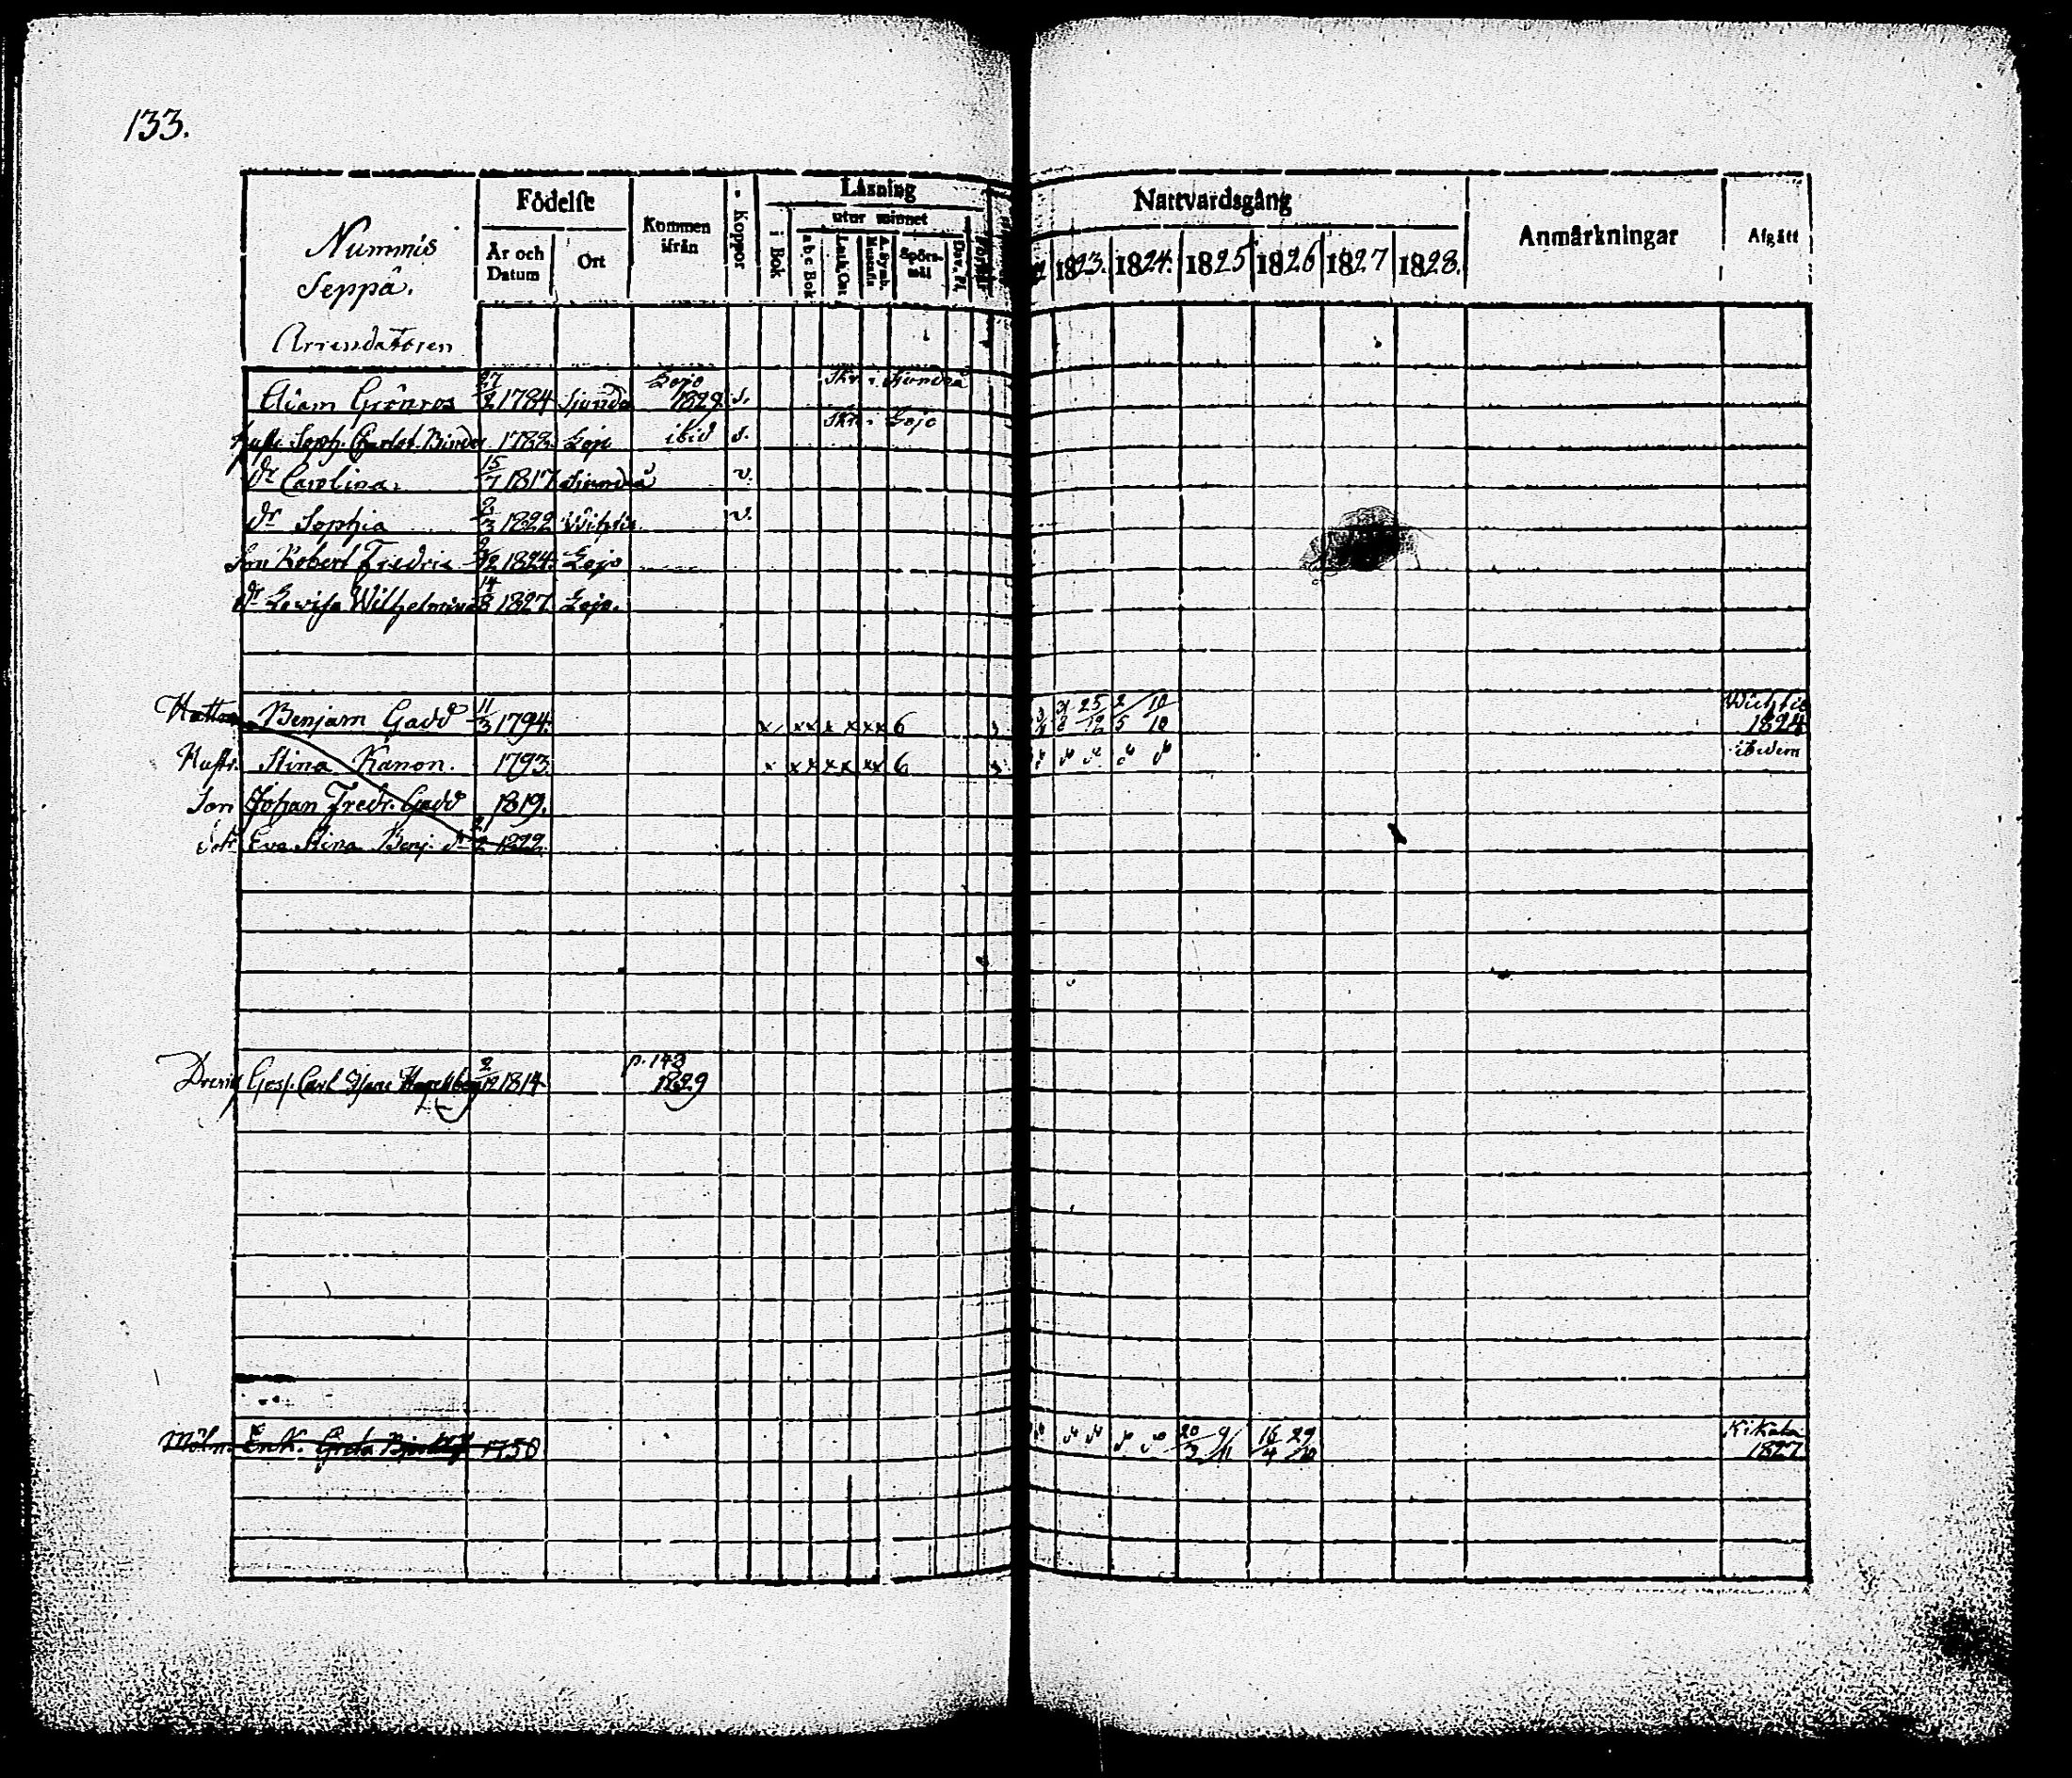 133.
Nummis
Seppä.
Arrendatoren
Födelse
År och Datum
Ort
Kommen ifrån
Koppor
Läsning
i Bok
utur minnet
a b c Bok
Luth. Cat.
A. Symb.
Spörs-mål
Dav. Ps.
Nattvardsgång
1823. 1824. 1825 1826 1827 1828.
Anmärkningar
Afgått
Adam Grönros 27/2 1784 Sjundå Lojo 1829 s. Skr. i Sjundeå
Hustr. Soph. Charlot. Binder 1788 Lojo ibid s. Skr. i Lojo
dr Carolina 15/7 1817 Sjundeå v.
dr Sophia 2/3 1822 Wihtis v.
Son Robert Fredric 1824 Lojo
dr Lovisa Wilhelmina 14/8 1827 Lojo.
Benjam Gadd 11/3 1794. x xx x x xx 6 31/8 25/12 2/5 10/10 Wichtis 1824
Hustr. Stina Kanon. 1793. x x x x x xx 6 ibidem
Son Johan Fredr. Gadd 1819.
Dotr Eva Stina Benj. dr 1822
Dreng Carl 2/12 1814 p. 143 1829
Möln. Enk. Greta 1750 20/3 9/11 16/4 29/10 Kikala 1827